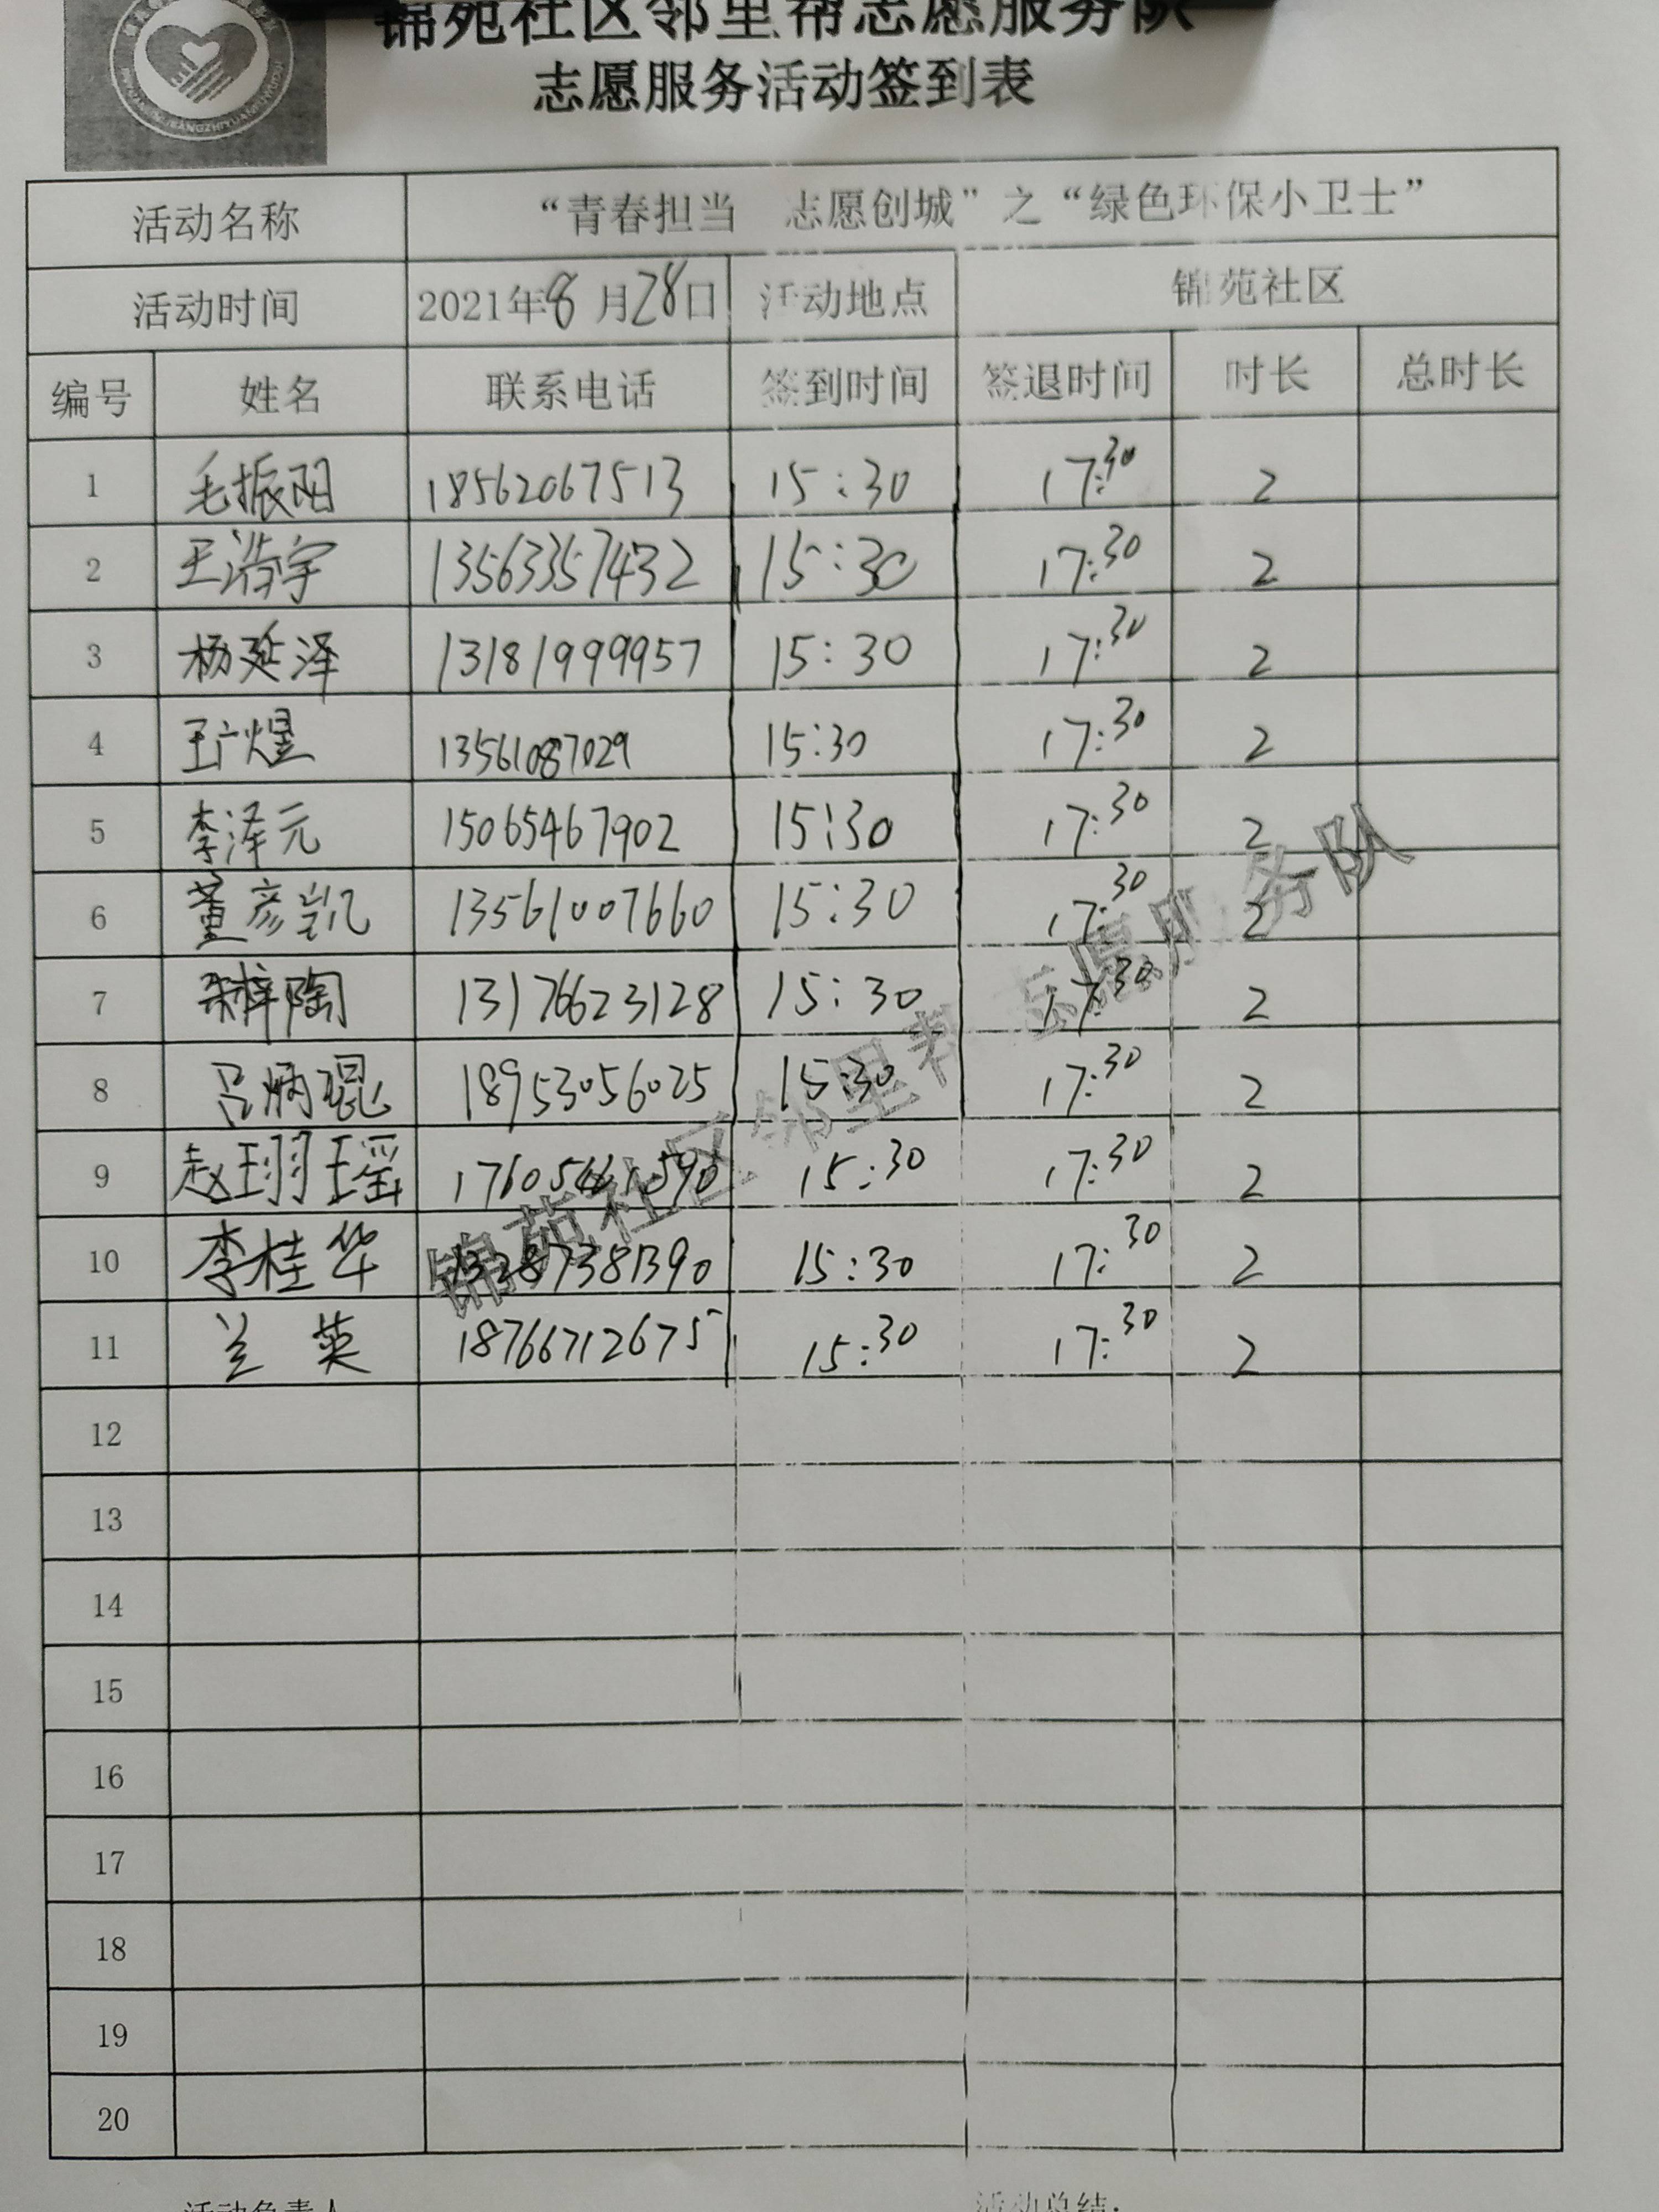 锦苑社区邻里帮志愿服务队
志愿服务活动签到表
活动名称 “青春担当 志愿创城”之“绿色环保小卫士”
活动时间 2021年8月28日 活动地点 锦苑社区
编号 姓名 联系电话 签到时间 签退时间 时长 总时长
1 毛振阳 18562067513 15:30 17:30 2
2 王浩宇 13563357432 15:30 17:30 2
3 杨延泽 13181999957 15:30 17:30 2
4 王广煜 13561087029 15:30 17:30 2
5 李泽元 15065467902 15:30 17:30 2
6 董彦凯 13561007660 15:30 17:30 2
7 朱梓陶 13176623128 15:30 17:30 2
8 吕炳琨 18953056025 15:30 17:30 2
9 赵珝瑶 15:30 17:30 2
10 李桂华 13287381390 15:30 17:30 2
11 兰英 18766712675 15:30 17:30 2
12
13
14
15
16
17
18
19
20
锦苑社区邻里帮志愿服务队
活动负责人
活动总结: